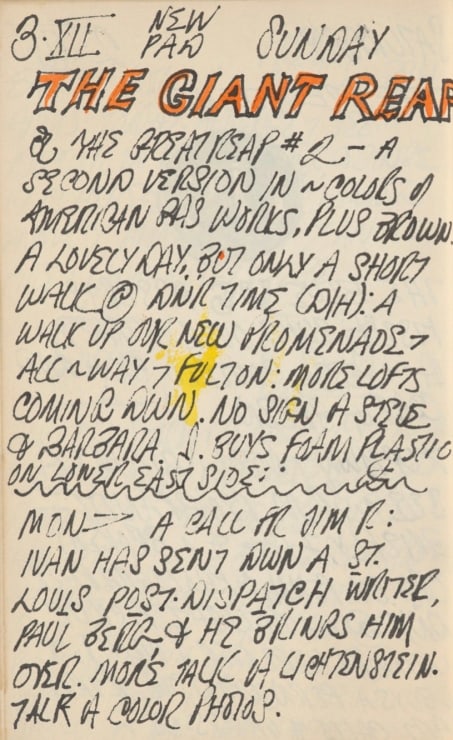 3·XII NEW PAD SUNDAY
THE GIANT REAP
& THE GREAT REAP #2 – A
SECOND VERSION IN ~ COLORS of
AMERICAN GAS WORKS, PLUS BROWN.
A LOVELY DAY, BUT ONLY A SHORT
WALK @ DNR TIME (D/H): A
WALK UP OUR NEW PROMENADE →
ALL ~ WAY → FULTON: MORE LOFTS
COMING DWN. NO SIGN A STEVE
& BARBARA. J. BUYS FOAM PLASTIC
ON LOWER EAST SIDE:
MON → A CALL FR JIM R:
IVAN HAS SENT DWN A ST.
LOUIS POST-DISPATCH WRITER,
PAUL BERG & HE BRINGS HIM
OVER. MORE TALK A LICHTENSTEIN.
TALK A COLOR PHOTOS.